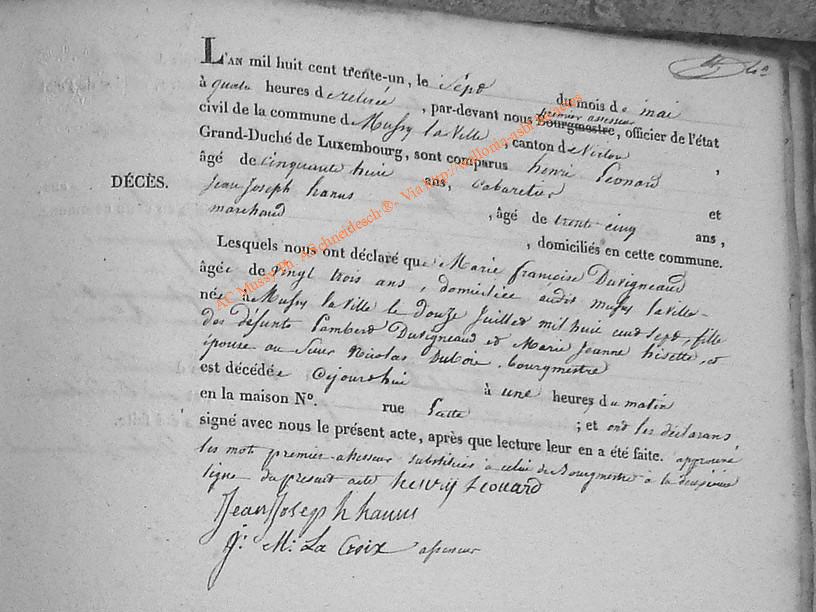 L'AN mil huit cent trente-un, le Sept du mois de mai
à quatre heures de relevée, par-devant nous premier assesseur Bourgmestre, officier de l'état
civil de la commune de Mussy la Ville, canton de Virton,
Grand-Duché de Luxembourg, sont comparus henri Léonard
âgé de cinquante huit ans, Cabaretier et
DÉCÈS.
Jean Joseph hanus, âgé de trente cinq ans,
marchand, domiciliés en cette commune.
Lesquels nous ont déclaré que Marie françoise Duvigneaud
âgée de vingt trois ans, domiciliée audit mussy la ville
née à Mussy la Ville le douze juillet mil huit cent sept, fille
des défunts Lambert Duvigneaud et Marie Jeanne hisette, et
épouse au Sieur Nicolas Dubois, bourgmestre
est décédée cejourdhui à une heures du matin
en la maison N°. rue ; et ont les déclarans,
signé avec nous le présent acte, après que lecture leur en a été faite. approuvé
les mot premier assesseur substitués à celui de Bourgmestre à la deuxième
ligne du présent acte henry Leonard
Jean Joseph hanus
J. M. La Croix assesseur
AC Mussy Th. A. Schneidesch ®- Via http://wallonia-nsbr.